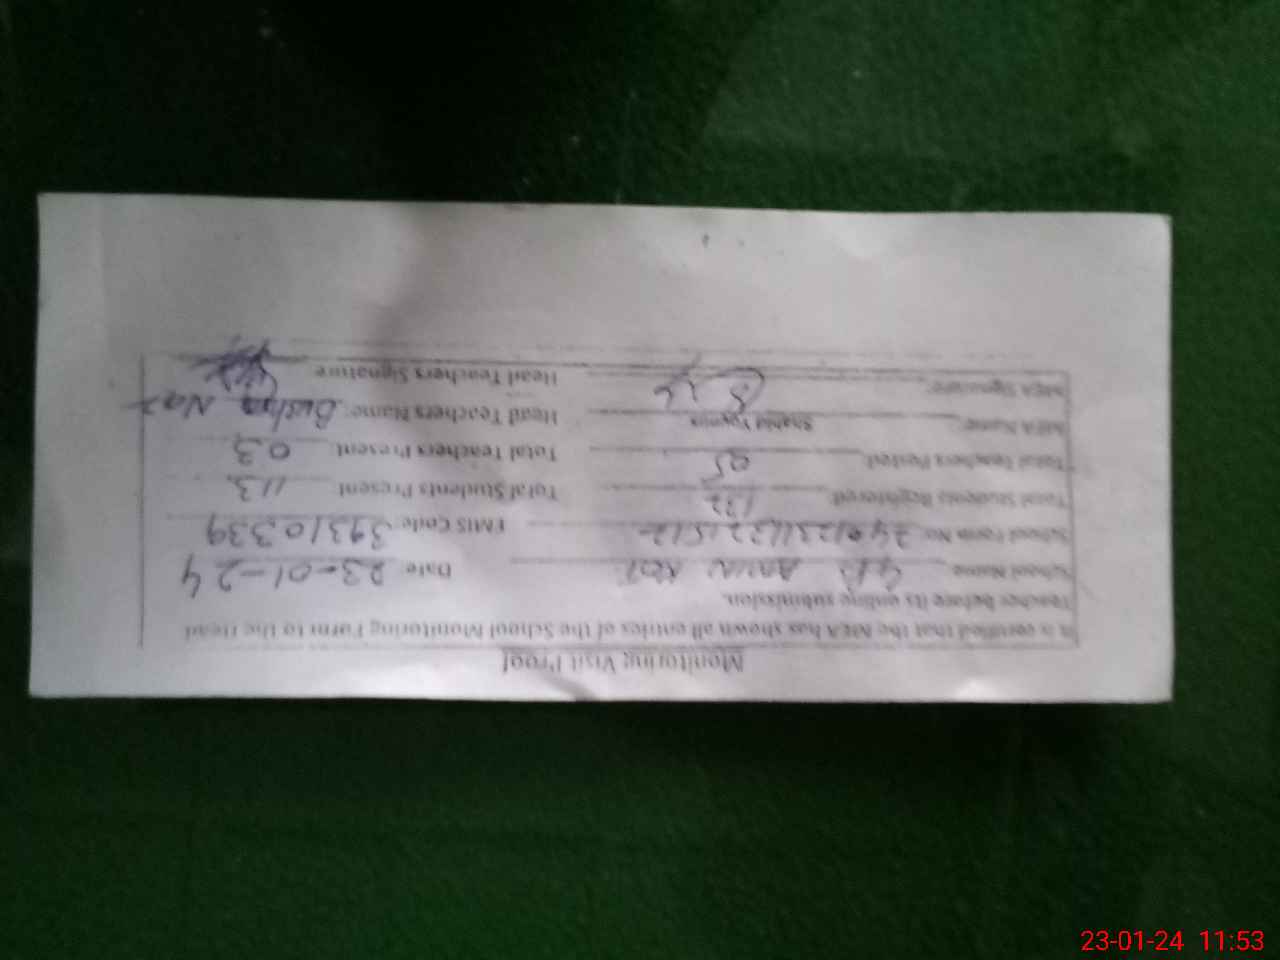 Monitoring Visit Proof
It is certified that the MEA has shown all entries of the School Monitoring Form to the Head
Teacher before its online submission.
School Name Date: 23-01-24
School Form No: EMIS Code: 39310339
Total Students Registered: 132 Total Students Present: 113
Total Teachers Posted: 05 Total Teachers Present: 03
MEA Name: Shahid Younis Head Teachers Name: Bushra Naz
MEA Signature: Head Teachers Signature
23-01-24 11:53